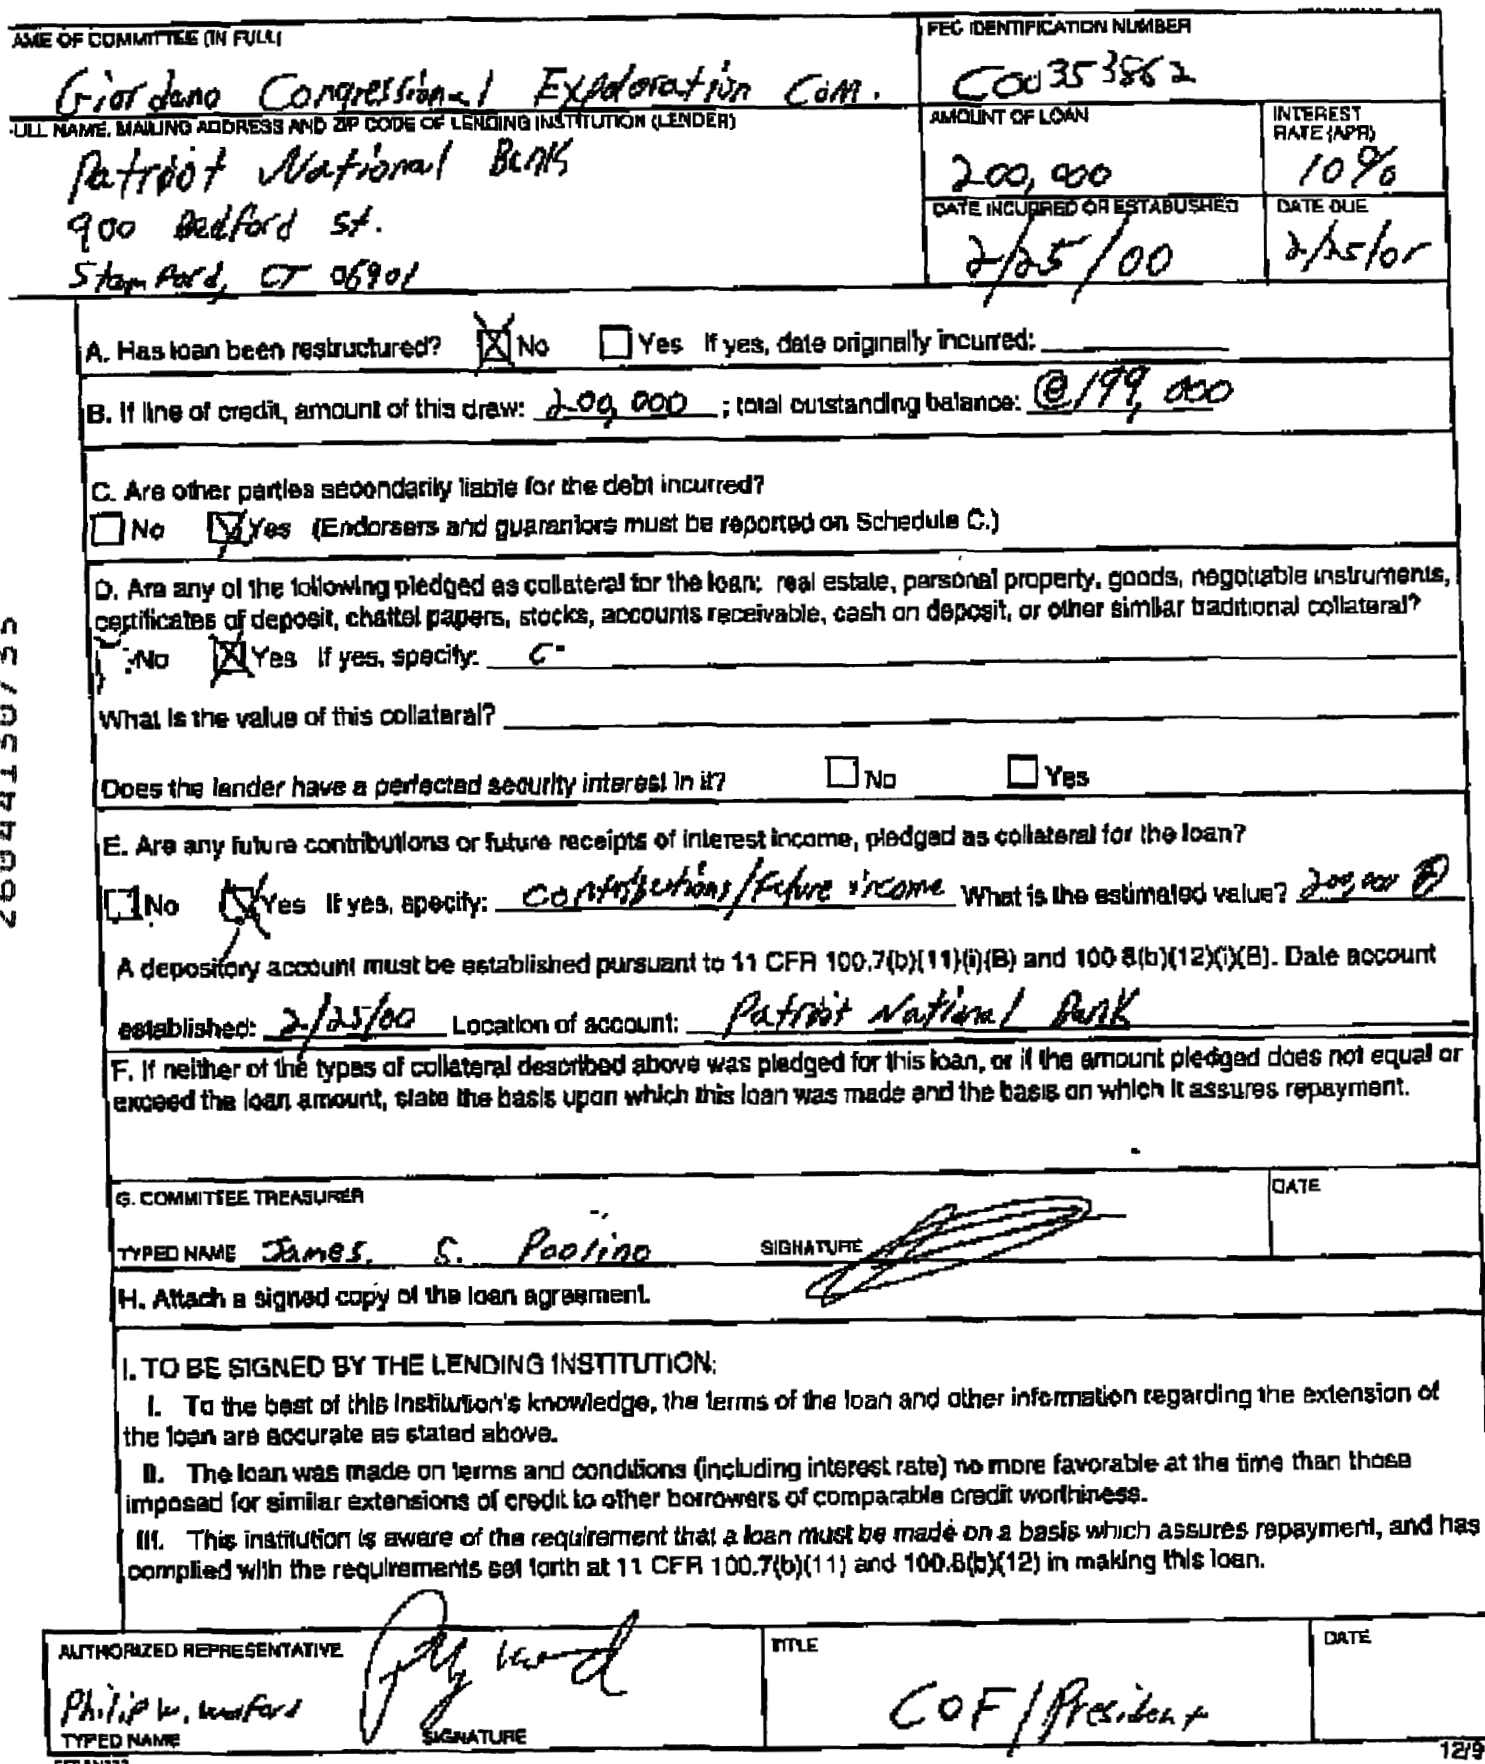 AME OF COMMITTEE (IN FULL)
Giordano Congressional Exploration Com.
FEC IDENTIFICATION NUMBER
C00353862
ULL NAME, MAILING ADDRESS AND ZIP CODE OF LENDING INSTITUTION (LENDER)
Patriot National Bank
900 Bedford St.
Stamford, CT 06901
AMOUNT OF LOAN
200,000
INTEREST RATE (APR)
10%
DATE INCURRED OR ESTABLISHED
2/25/00
DATE DUE
2/25/01
A. Has loan been restructured? No Yes If yes, date originally incurred:
B. If line of credit, amount of this draw: 200,000 ; total outstanding balance: @199,000
C. Are other parties secondarily liable for the debt incurred?
No Yes (Endorsers and guarantors must be reported on Schedule C.)
D. Are any of the following pledged as collateral for the loan: real estate, personal property, goods, negotiable instruments,
certificates of deposit, chattel papers, stocks, accounts receivable, cash on deposit, or other similar traditional collateral?
No Yes If yes, specify:
What is the value of this collateral?
Does the lender have a perfected security interest in it? No Yes
E. Are any future contributions or future receipts of interest income, pledged as collateral for the loan?
No Yes If yes, specify: Contributions/Future income What is the estimated value? 200,000
A depository account must be established pursuant to 11 CFR 100.7(b)(11)(i)(B) and 100.8(b)(12)(i)(B). Date account
established: 2/25/00 Location of account: Patriot National Bank
F. If neither of the types of collateral described above was pledged for this loan, or if the amount pledged does not equal or
exceed the loan amount, state the basis upon which this loan was made and the basis on which it assures repayment.
G. COMMITTEE TREASURER
DATE
TYPED NAME James. S. Paolino SIGNATURE
H. Attach a signed copy of the loan agreement.
I. TO BE SIGNED BY THE LENDING INSTITUTION:
I. To the best of this institution's knowledge, the terms of the loan and other information regarding the extension of
the loan are accurate as stated above.
II. The loan was made on terms and conditions (including interest rate) no more favorable at the time than those
imposed for similar extensions of credit to other borrowers of comparable credit worthiness.
III. This institution is aware of the requirement that a loan must be made on a basis which assures repayment, and has
complied with the requirements set forth at 11 CFR 100.7(b)(11) and 100.8(b)(12) in making this loan.
AUTHORIZED REPRESENTATIVE
TITLE
DATE
Philip W. Wolford
COF/President
TYPED NAME
SIGNATURE
12/9